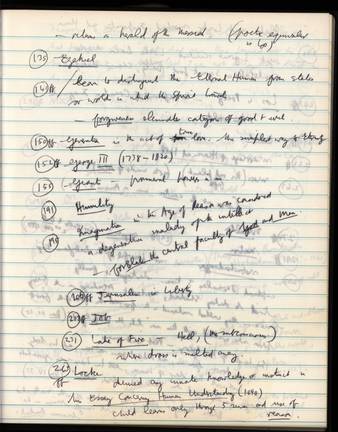 - when a herald of the messiah (poetic equivalent is Los)
(135) - Ezekiel
(141)ff / Learn to distinguish the Eternal Human from states
or worlds in which the Spirits travels
- forgiveness eliminates category of good & evil
(150)ff - Generation is the act of true love. The simplest way to Eternity
(152)ff George III (1738-1820)
(155) - Giant prominent powers
(191) Humility
(196) Imagination in the Age of Reason was considered
a degenerative malady of the intellect
for Blake the central faculty of God and Man
ff Jerusalem is Liberty
ff Job
(271) Lake of Fire Hell, (the subconscious)
dross is melted away
ff Locke denied any innate knowledge or instinct in
his Essay Concerning Human Understanding (1690)
child learns only through 5 senses and use of
reason.